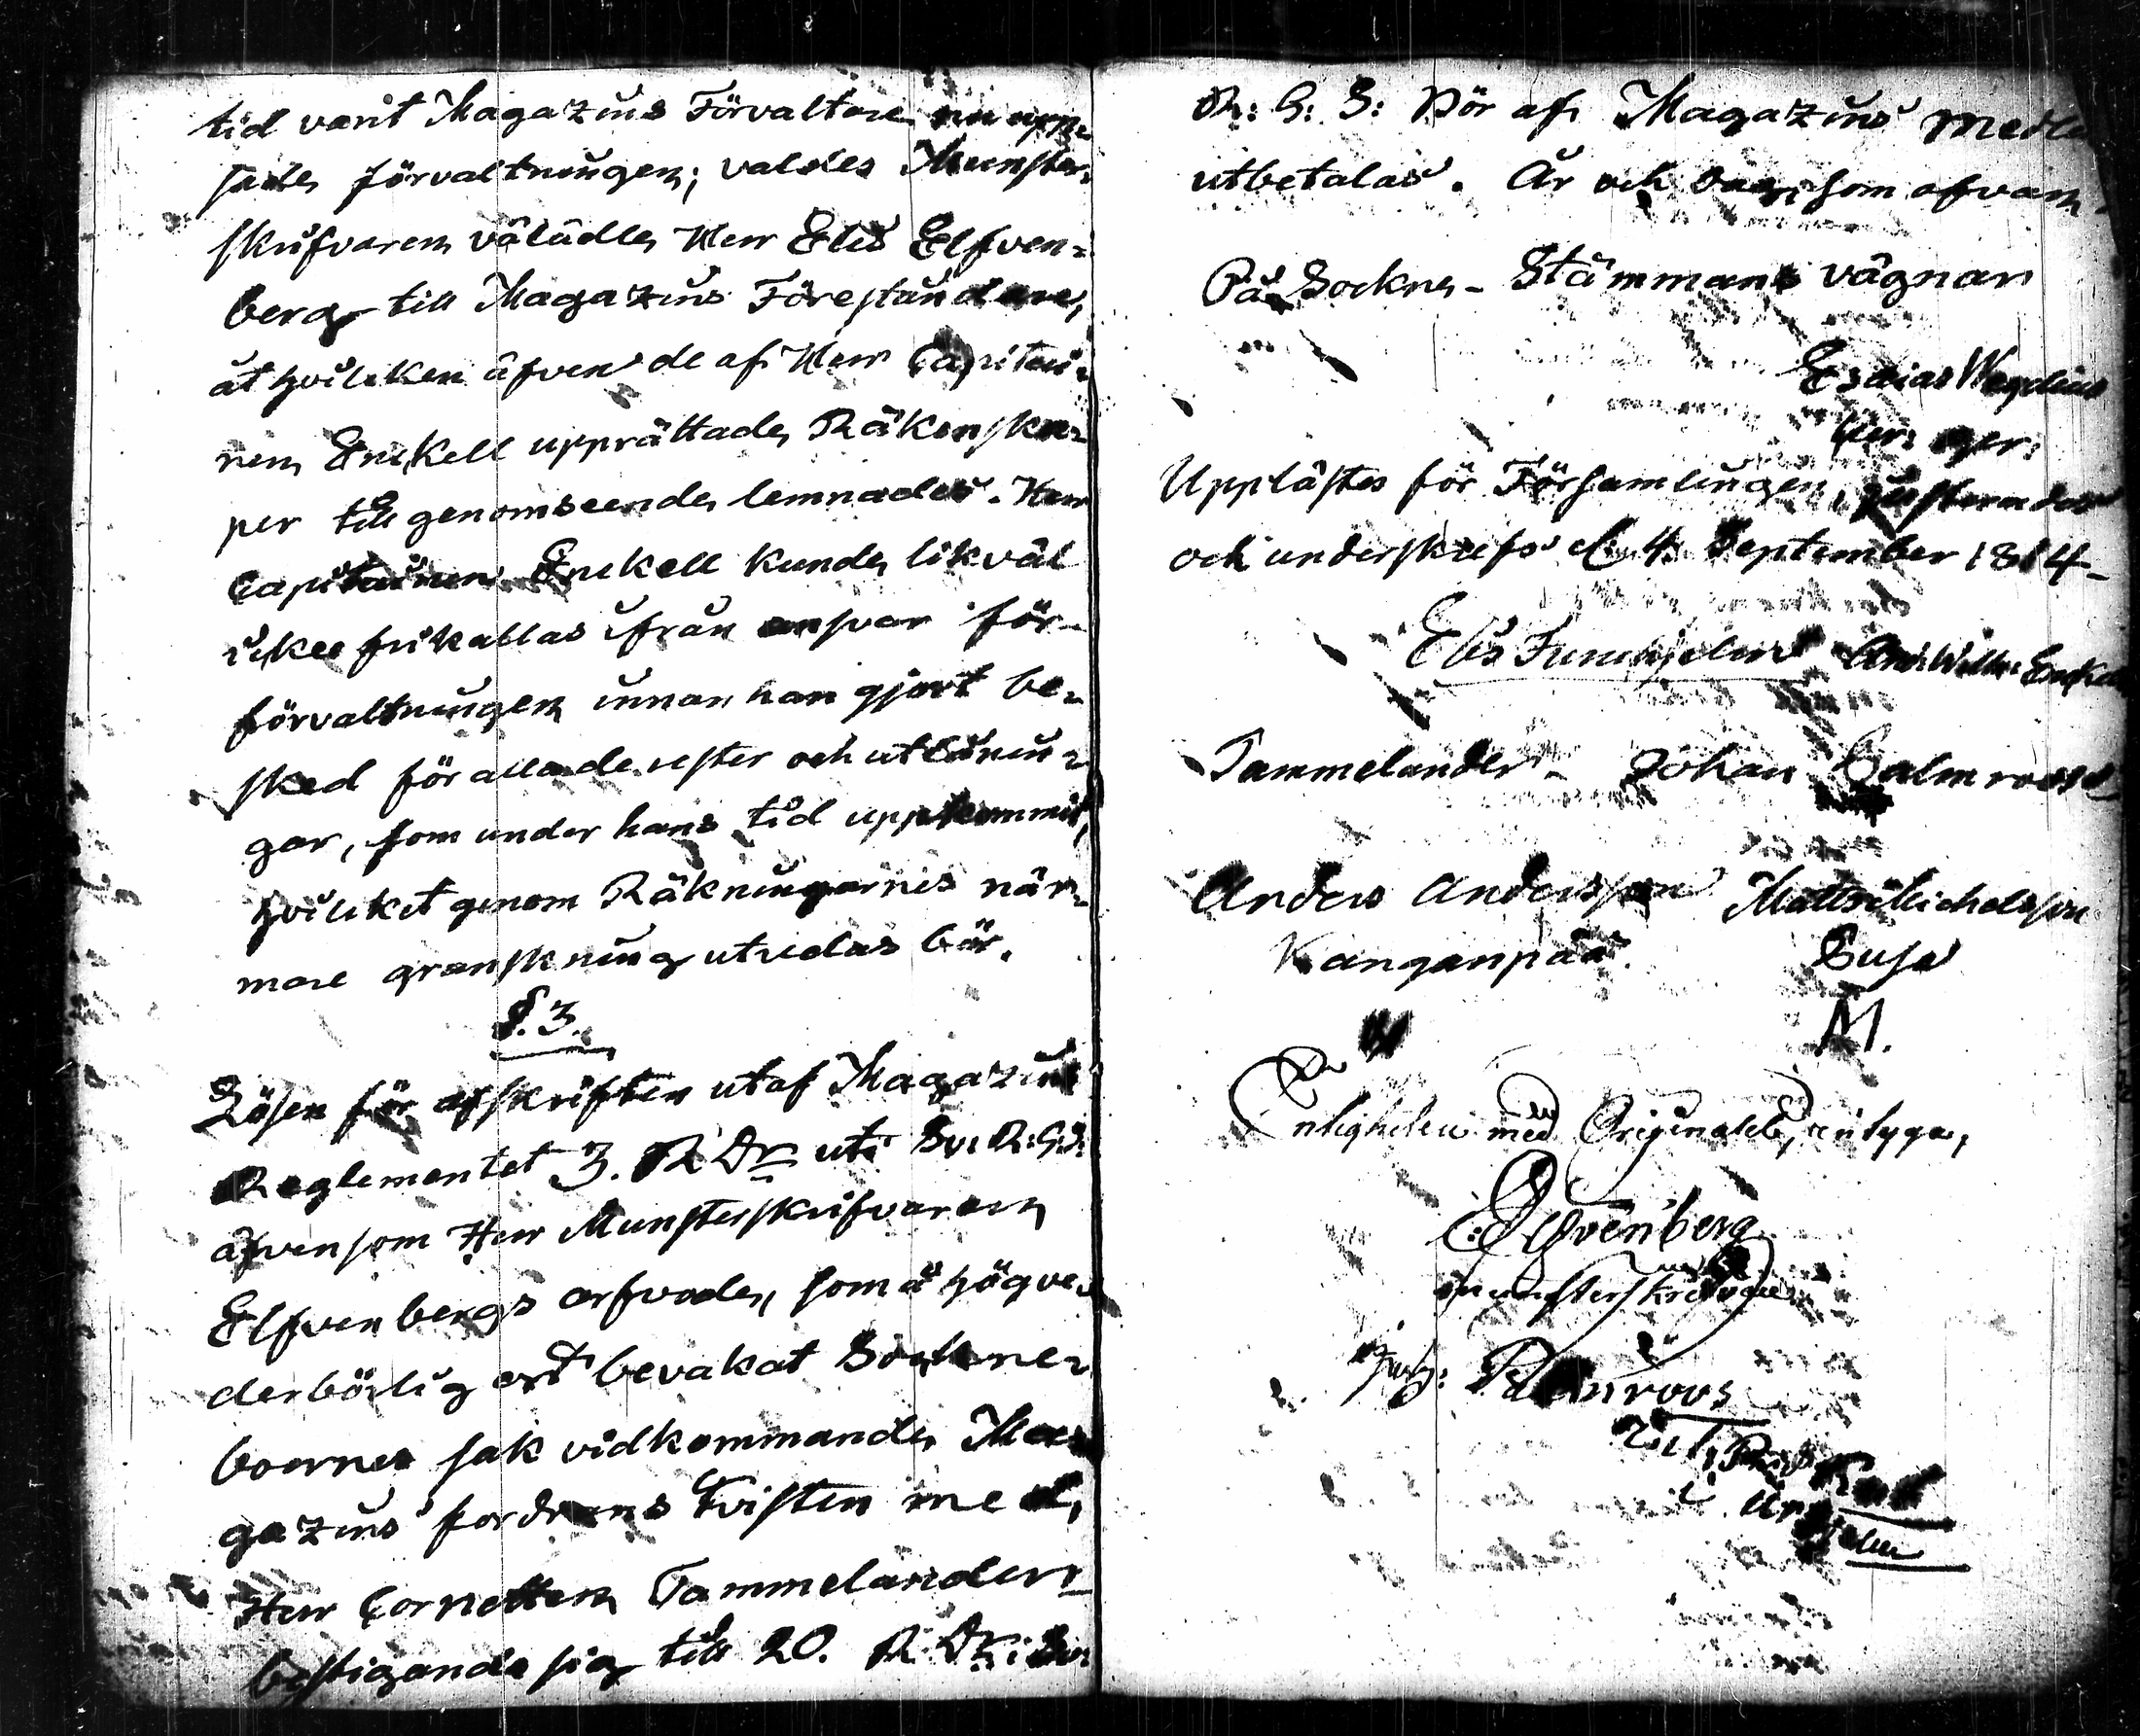 tid varit Magazins Förvaltare nu upp-
sade förvaltningen; valdes Munster-
skrifvaren välädle Herr Elis Elfven-
berg till Magazins Föreståndare,
åt hvilcken äfven de af Herr Capitai-
nen Enckell upprättade Räkenska-
per till genomseende lemnades. Herr
Capitainen Enckell kunde likväl
icke frikallas ifrån ansvar för
förvaltningen innan han gjort be-
sked för alla de rester och utlånin-
gar, som under hans tid uppkommit,
hvilcket genom Räkningarnes när-
mare granskning utredas bör.
§. 3.
Lösen för afskriften utaf Magazins
Reglementet 3. R Dr uti Sv: R: G: S:
äfvensom Herr Munsterskrifvaren
Elfvenbergs arfvode, som å högve-
derbörlig ort bevakat Sockne-
boernes sak vidkommande Ma-
gazins fordrans tvisten med,
Herr Cornetten Tammelander
bestigande sig till 20. R. Dr: Sv:
R: G: S: bör af Magazins medel
utbetalas. År och dag som ofvan
På Sockne-Stämmans vägnar
Esaias Wegelius
Upplästes för Församlingen, justerades
och underskrefs d. 4. September 1814-
Elis Andr: Wilh: Enckell
Tammelander- Johan Palmroos
Anders Andersson Matts Michelsson
Kanganpää. Susa
M.
Enligheten med Originalet, intyga,
E: Elfvenberg
munsterskrifvare
Joh: Palmroos